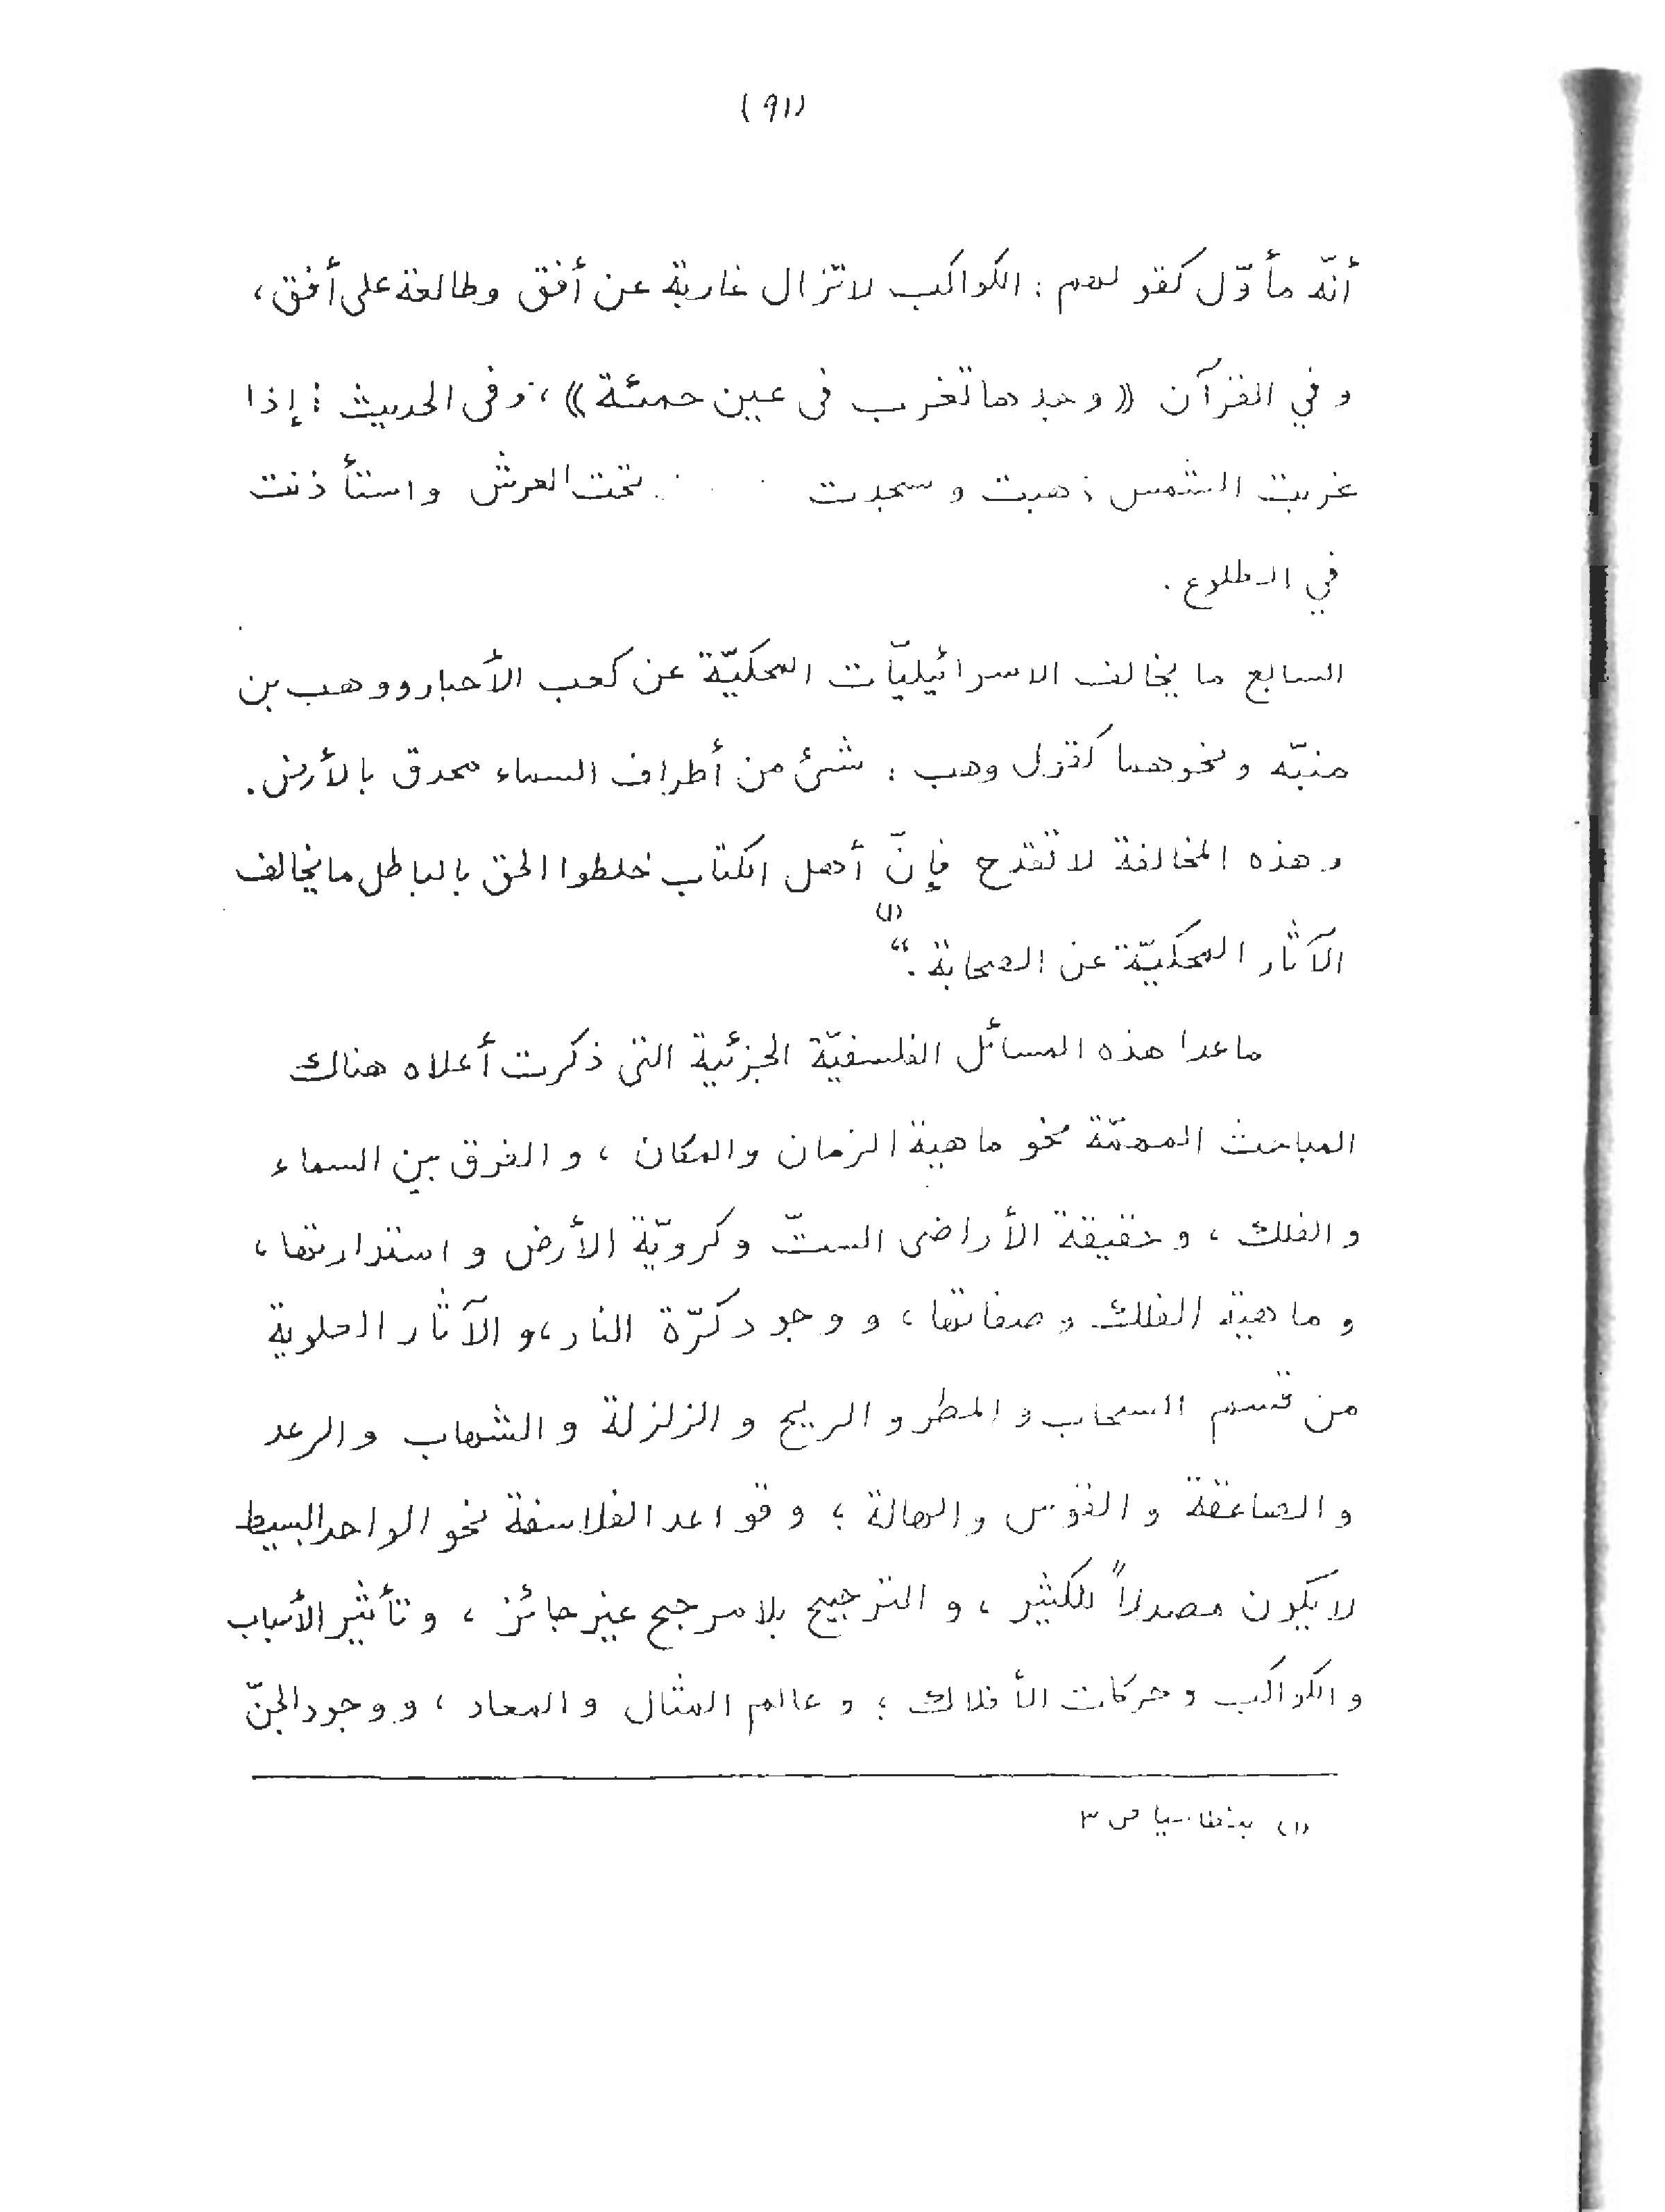 (٩١)
أنّه مأوّل كقولهم : الكواكب لاتزال غاربة عن أفق وطالعة على أفق،
و في القرآن ((وجدها تغرب فى عين حمئة))، وفى الحديث : إذا
غربت الشمس ذهبت و سجدت تحت العرش واستأذنت
في الطلوع .
السابع ما يخالف الاسرائيليّات المحكيّة عن كعب الأحبار ووهب بن
منبّه و نحوهما كقول وهب : شئ من أطراف السماء محدق بالأرض .
وهذه المخالفة لا تقدح فإنّ أهل الكتاب خلطوا الحق بالباطل ما يخالف
الآثار المحكيّة عن الصحابة .“(١)
ماعدا هذه المسائل الفلسفيّة الجزئية التى ذكرت أعلاه هناك
المباحث المهمّة نحو ماهية الزمان والمكان ، و الفرق بين السماء
و الفلك ، و حقيقة الأراضى الستّ و كرويّة الأرض و استدارتها ،
و ماهية الفلك و صفاتها ، و وجود كرّة النار ، و الآثار العلوية
من قسم السحاب و المطر و الريح و الزلزلة و الشهاب و الرعد
و الصاعقة و القوس والهالة ؛ و قواعد الفلاسفة نحو الواحد البسيط
لا يكون مصدراً للكثير ، و الترجيح بلا مرجح غير جائز ، و تأثير الأسباب
و الكواكب و حركات الأفلاك ؛ و عالم المثال و المعاد ، و وجود الجنّ
(١) ص ٣